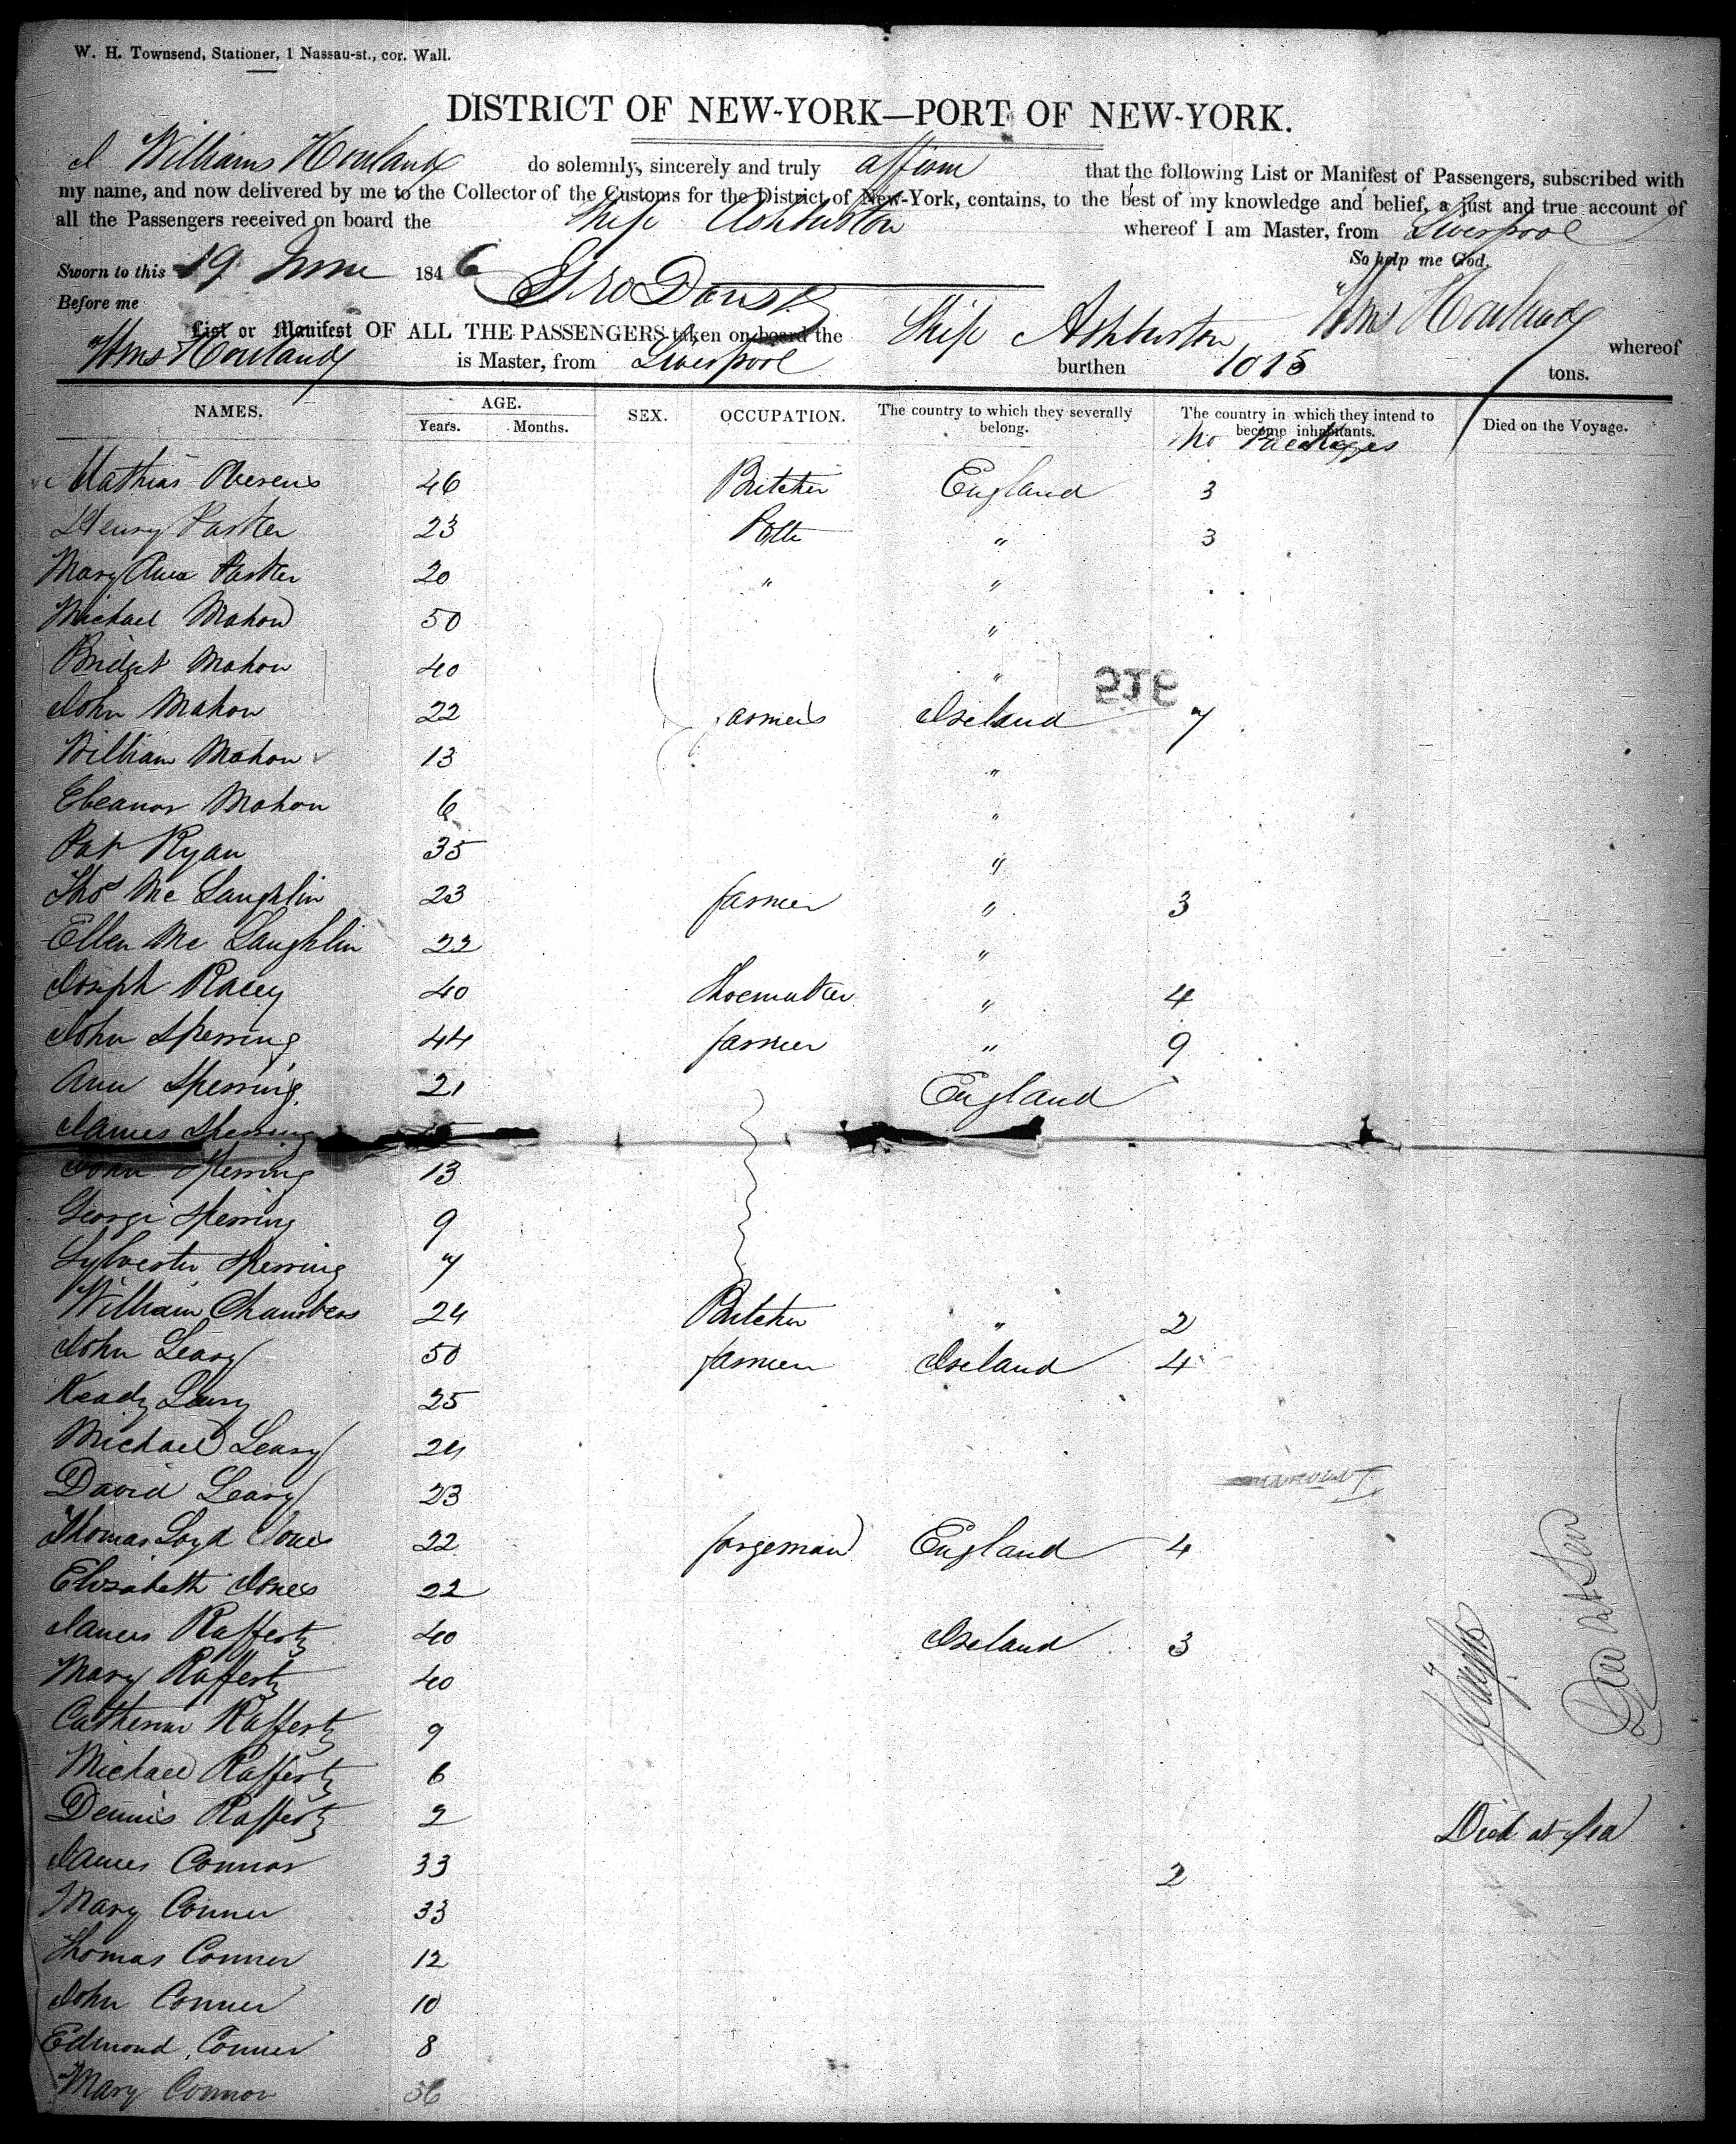 W. H. Townsend, Stationer, 1 Nassau-st., cor. Wall.
DISTRICT OF NEW-YORK—PORT OF NEW-YORK.
I Williams Howland do solemnly, sincerely and truly affirm that the following List or Manifest of Passengers, subscribed with
my name, and now delivered by me to the Collector of the Customs for the District of New-York, contains, to the best of my knowledge and belief, a just and true account of
all the Passengers received on board the Ship Ashburton whereof I am Master, from Liverpool
Sworn to this 19 June 1846 So help me God.
Before me Wms Howland
List or Manifest OF ALL THE PASSENGERS taken on board the Ship Ashburton whereof
Wms Howland is Master, from Liverpool burthen 1015 tons.
NAMES. AGE. Years. Months. SEX. OCCUPATION. The country to which they severally belong. The country in which they intend to become inhabitants. Died on the Voyage.
No Packages
Mathias 46 Butcher England 3
Henry Parker 23 3
Mary Ann Parker 20 " "
Michael Mahon 50 "
Bridget Mahon 40 "
516
John Mahon 22 farmers Ireland 7
William Mahon 13 "
Eleanor Mahon 6 "
Pat Ryan 35 "
Thos Mc Laughlin 23 farmer " 3
Ellen Mc Laughlin 22 "
Joseph Racey 40 Shoemaker " 4
John Sperring 44 farmer " 9
Ann Sperring 21 England
James Sperring
John Sperring 13
George Sperring 9
Sylvester Sperring 7
William Chambers 24 Butcher " 2
John Leary 50 farmer Ireland 4
Leary 25
Michael Leary 24
David Leary 23
Thomas Loyd Jones 22 forgeman England 4
Elizabeth Jones 22
James Rafferty 40 Ireland 3
Mary Rafferty 40
Catherine Rafferty 9
Michael Rafferty 6
Dennis Rafferty 2 Died at Sea
James Connor 33 2
Mary Conner 33
Thomas Conner 12
John Conner 10
Edmond Conner 8
Mary Connor 36